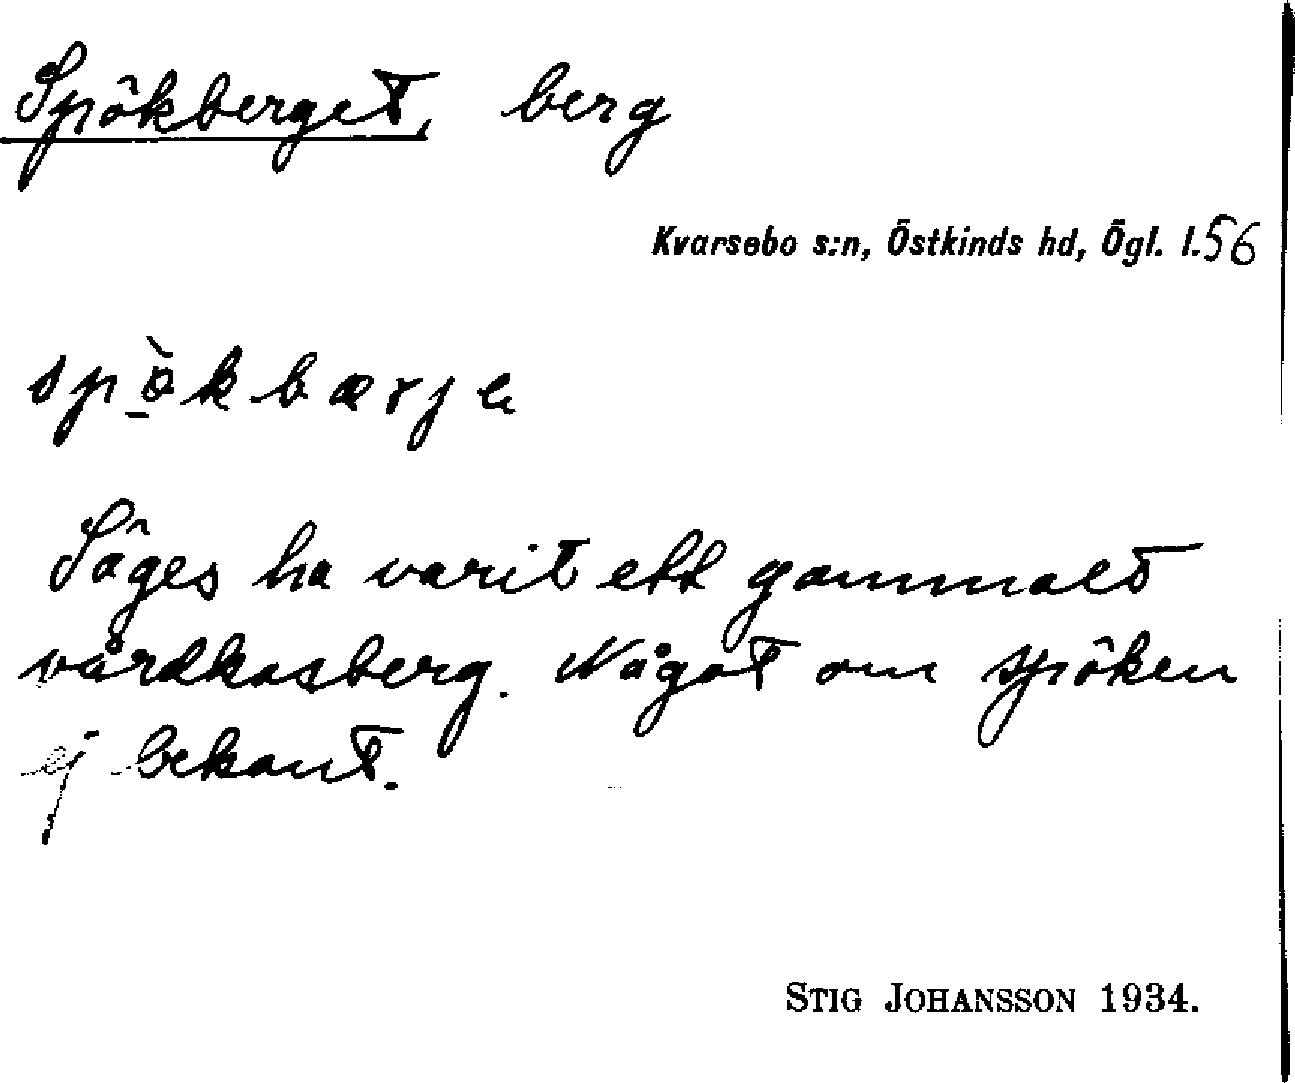 Spökberget, berg
Kvarsebo s:n, Östkinds hd, Ögl. l. 56
spö̀kbærje
Säges ha varit ett gammalt
vårdkasberg. Något om spöken
ej bekant.
STIG JOHANSSON 1934.